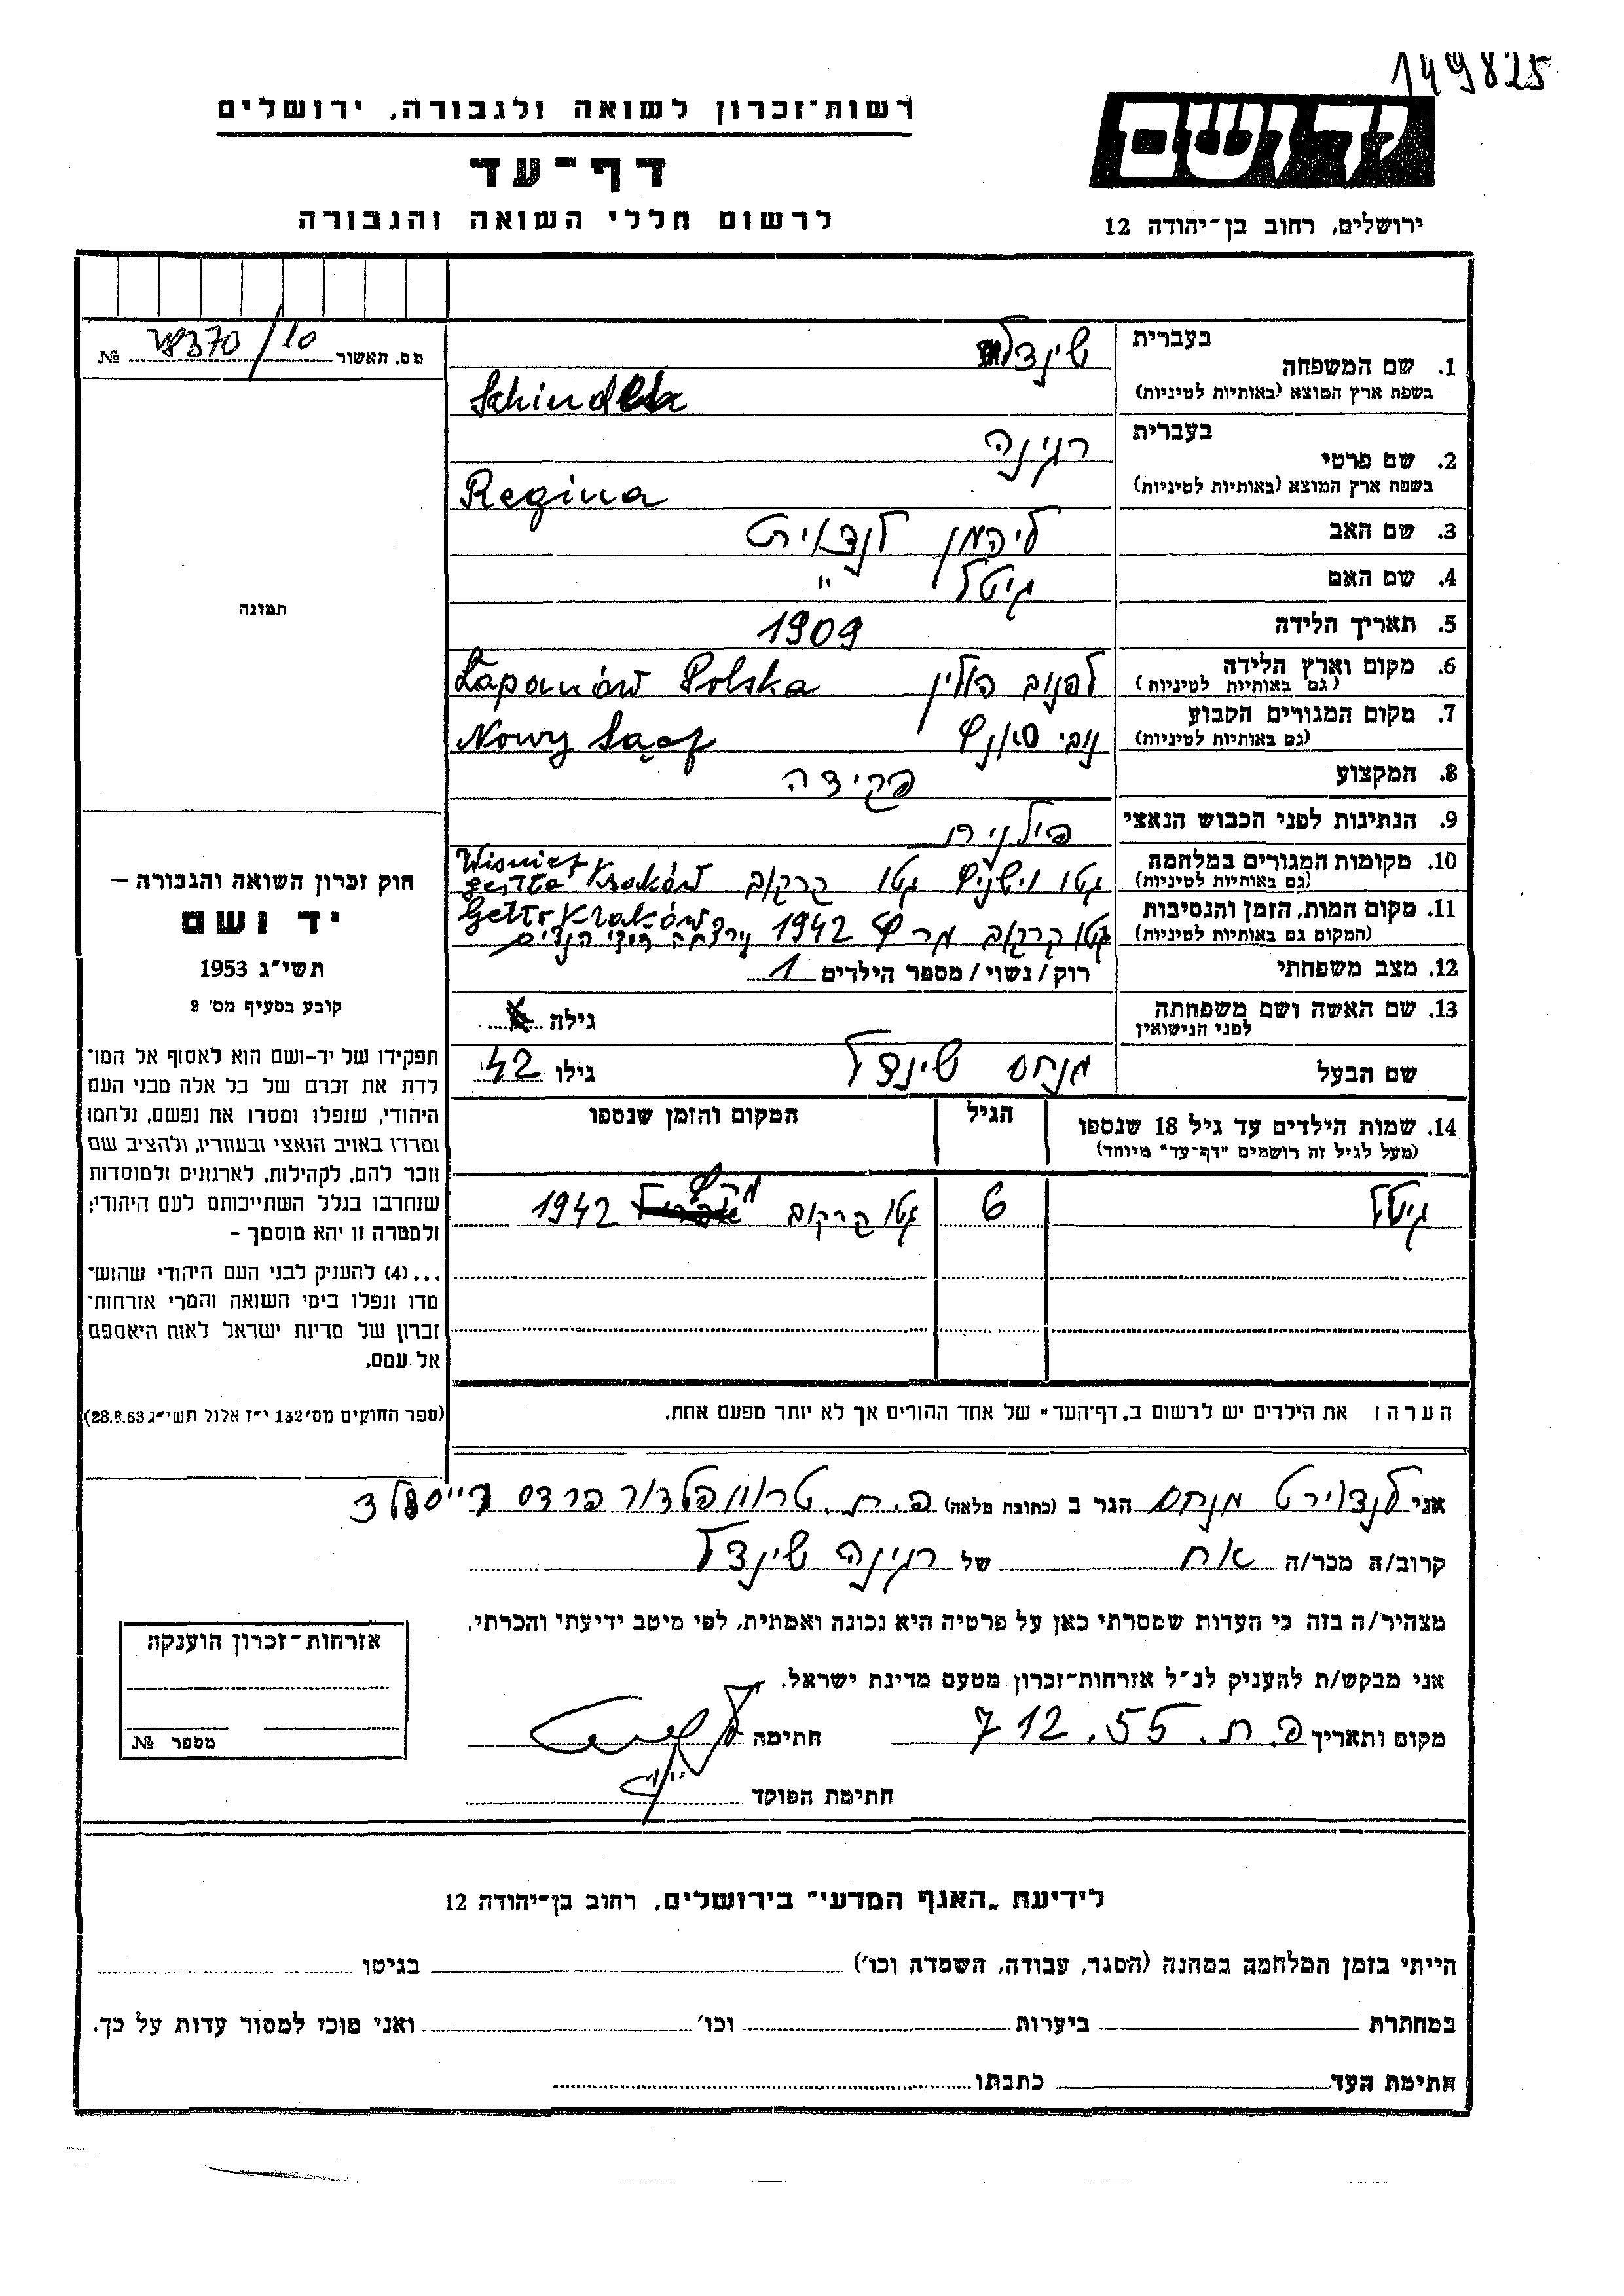 149825
רשות־זכרון לשואה ולגבורה, ירושלים
דף־עד
לרשום חללי השואה והגבורה
ידושם
ירושלים, רחוב בן־יהודה 12
מס. האשור 10/ №
תמונה
חוק זכרון השואה והגבורה —
יד ושם
תשי״ג 1953
קובע בסעיף מס׳ 2
תפקידו של יד־ושם הוא לאסוף אל המו־
לדת את זכרם של כל אלה מבני העם
היהודי, שנפלו ומסרו את נפשם, נלחמו
ומרדו באויב הנאצי ובעוזריו, ולהציב שם
וזכר להם, לקהילות, לארגונים ולמוסדות
שנחרבו בגלל השתייכותם לעם היהודי;
ולמטרה זו יהא מוסמך –
...(4) להעניק לבני העם היהודי שהוש־
מדו ונפלו בימי השואה והמרי אזרחות־
זכרון של מדינת ישראל לאות היאספם
אל עמם.
(ספר החוקים מס׳ 132 י״ז אלול תשי״ג 28.8.53)
1. שם המשפחה בעברית שינדל
בשפת ארץ המוצא (באותיות לטיניות)
2. שם פרטי בעברית רגינה
בשפת ארץ המוצא (באותיות לטיניות) Regina
3. שם האב ליהמן לנדוירט
4. שם האם גיטל ״
5. תאריך הלידה 1909
6. מקום וארץ הלידה לפנוב פולין Łapanów Polska
(גם באותיות לטיניות)
7. מקום המגורים הקבוע נובי סאנץ Nowy Sącz
(גם באותיות לטיניות)
8. המקצוע פקידה
9. הנתינות לפני הכבוש הנאצי פולנית
10. מקומות המגורים במלחמה גטו וישניץ גטו קרקוב Wisnicz getto Kraków
(גם באותיות לטיניות)
11. מקום המות, הזמן והנסיבות גטו קרקוב מרץ 1942 Getto Kraków
(המקום גם באותיות לטיניות)
12. מצב משפחתי רוק/נשוי/מספר הילדים 1
13. שם האשה ושם משפחתה גילה
לפני הנישואין
שם הבעל מנחם שינדל גילו 42
14. שמות הילדים עד גיל 18 שנספו הגיל המקום והזמן שנספו
(מעל לגיל זה רושמים ״דף־עד״ מיוחד)
גיטל 6 גטו קרקוב מרץ 1942
הערה: את הילדים יש לרשום ב„דף־העד״ של אחד ההורים אך לא יותר מפעם אחת.
אני לנדוירט מנחם הגר ב (כתובת מלאה) פ.ת. פרדס
קרוב/ה מכר/ה אח של רגינה שינדל
מצהיר/ה בזה כי העדות שמסרתי כאן על פרטיה היא נכונה ואמתית, לפי מיטב ידיעתי והכרתי.
אני מבקש/ת להעניק לנ״ל אזרחות־זכרון מטעם מדינת ישראל.
מקום ותאריך פ.ת. 7 12.55 חתימה
חתימת הפוקד
אזרחות־זכרון הוענקה
מספר №
לידיעת „האגף המדעי״ בירושלים, רחוב בן־יהודה 12
הייתי בזמן המלחמה במחנה (הסגר, עבודה, השמדה וכו׳) בגיטו
במחתרת ביערות וכו׳ ואני מוכן למסור עדות על כך.
חתימת העד כתבתו